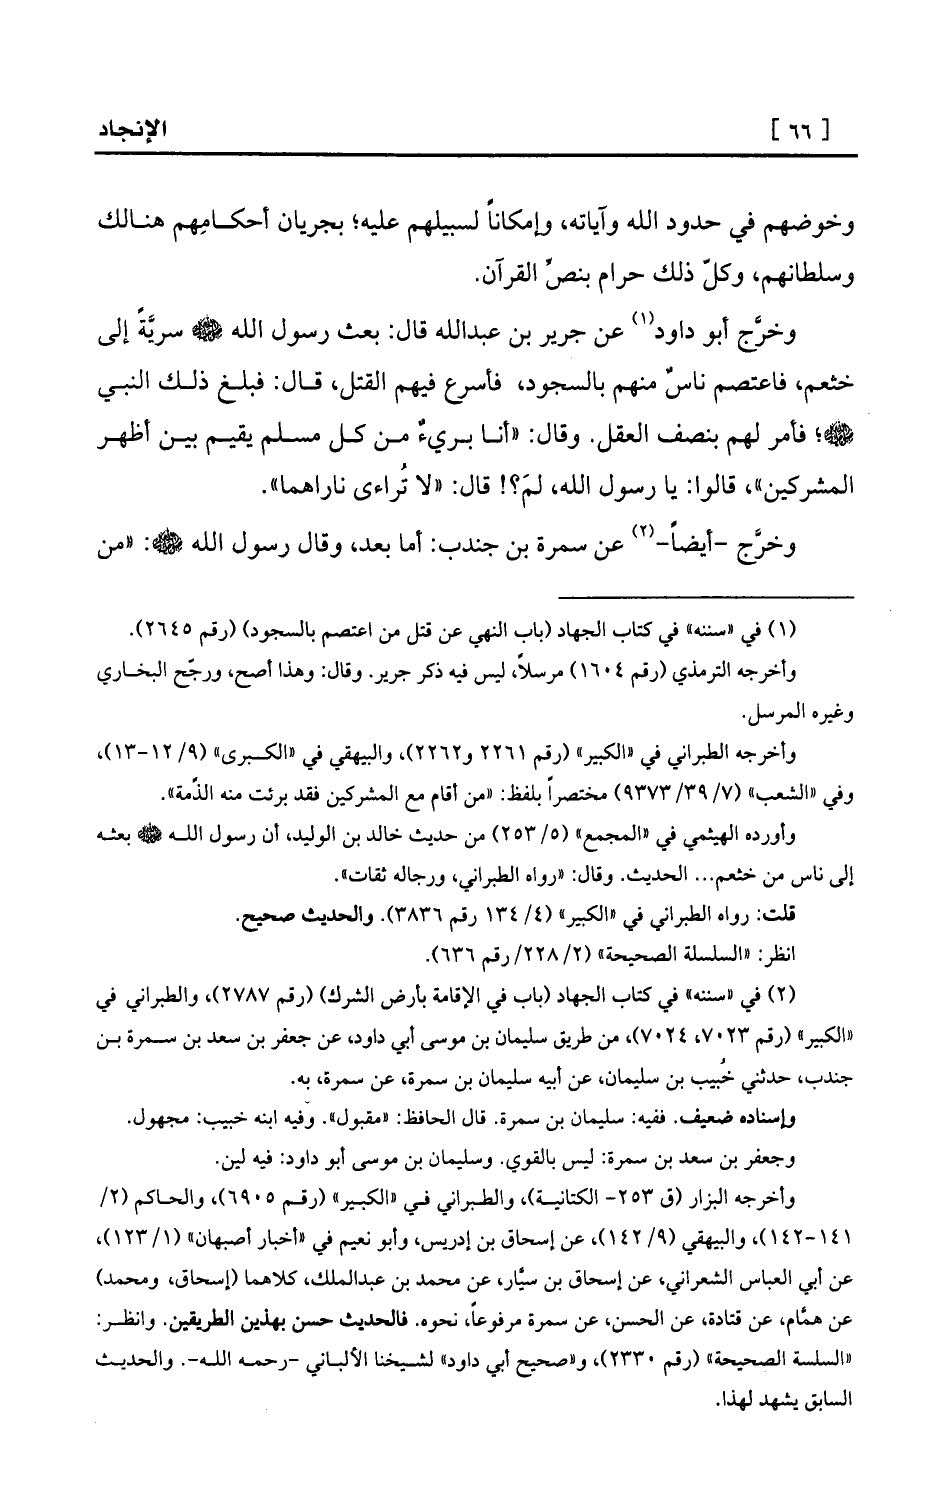 [ ٦٦ ] الإنجاد
وخوضهم في حدود الله وآياته، وإمكاناً لسبيلهم عليه؛ بجريان أحكامِهم هنالك
وسلطانهم، وكلّ ذلك حرام بنصِّ القرآن.
وخرَّج أبو داود(١) عن جرير بن عبدالله قال: بعث رسول الله ﷺ سريَّةً إلى
خثعم، فاعتصم ناسٌ منهم بالسجود، فأسرع فيهم القتل، قال: فبلغ ذلك النبي
ﷺ؛ فأمر لهم بنصف العقل. وقال: «أنا بريءٌ من كل مسلم يقيم بين أظهر
المشركين»، قالوا: يا رسول الله، لمَ؟! قال: «لا تُراءى ناراهما».
وخرَّج -أيضاً-(٢) عن سمرة بن جندب: أما بعد، وقال رسول الله ﷺ: «من
(١) في «سننه» في كتاب الجهاد (باب النهي عن قتل من اعتصم بالسجود) (رقم ٢٦٤٥).
وأخرجه الترمذي (رقم ١٦٠٤) مرسلاً، ليس فيه ذكر جرير. وقال: وهذا أصح، ورجّح البخاري
وغيره المرسل.
وأخرجه الطبراني في «الكبير» (رقم ٢٢٦١ و٢٢٦٢)، والبيهقي في «الكبرى» (٩/ ١٢-١٣)،
وفي «الشعب» (٧/ ٣٩/ ٩٣٧٣) مختصراً بلفظ: «من أقام مع المشركين فقد برئت منه الذّمة».
وأورده الهيثمي في «المجمع» (٥/ ٢٥٣) من حديث خالد بن الوليد، أن رسول الله ﷺ بعثه
إلى ناس من خثعم... الحديث. وقال: «رواه الطبراني، ورجاله ثقات».
قلت: رواه الطبراني في «الكبير» (٤/ ١٣٤ رقم ٣٨٣٦). والحديث صحيح.
انظر: «السلسلة الصحيحة» (٢/ ٢٢٨/ رقم ٦٣٦).
(٢) في «سننه» في كتاب الجهاد (باب في الإقامة بأرض الشرك) (رقم ٢٧٨٧)، والطبراني في
«الكبير» (رقم ٧٠٢٣، ٧٠٢٤)، من طريق سليمان بن موسى أبي داود، عن جعفر بن سعد بن سمرة بن
جندب، حدثني خُبيب بن سليمان، عن أبيه سليمان بن سمرة، عن سمرة، به.
وإسناده ضعيف. ففيه: سليمان بن سمرة. قال الحافظ: «مقبول». وفيه ابنه خبيب: مجهول.
وجعفر بن سعد بن سمرة: ليس بالقوي. وسليمان بن موسى أبو داود: فيه لين.
وأخرجه البزار (ق ٢٥٣- الكتانية)، والطبراني في «الكبير» (رقم ٦٩٠٥)، والحاكم (٢/
١٤١-١٤٢)، والبيهقي (٩/ ١٤٢)، عن إسحاق بن إدريس، وأبو نعيم في «أخبار أصبهان» (١/ ١٢٣)،
عن أبي العباس الشعراني، عن إسحاق بن سيَّار، عن محمد بن عبدالملك، كلاهما (إسحاق، ومحمد)
عن همَّام، عن قتادة، عن الحسن، عن سمرة مرفوعاً، نحوه. فالحديث حسن بهذين الطريقين. وانظر:
«السلسة الصحيحة» (رقم ٢٣٣٠)، و«صحيح أبي داود» لشيخنا الألباني -رحمه الله-. والحديث
السابق يشهد لهذا.